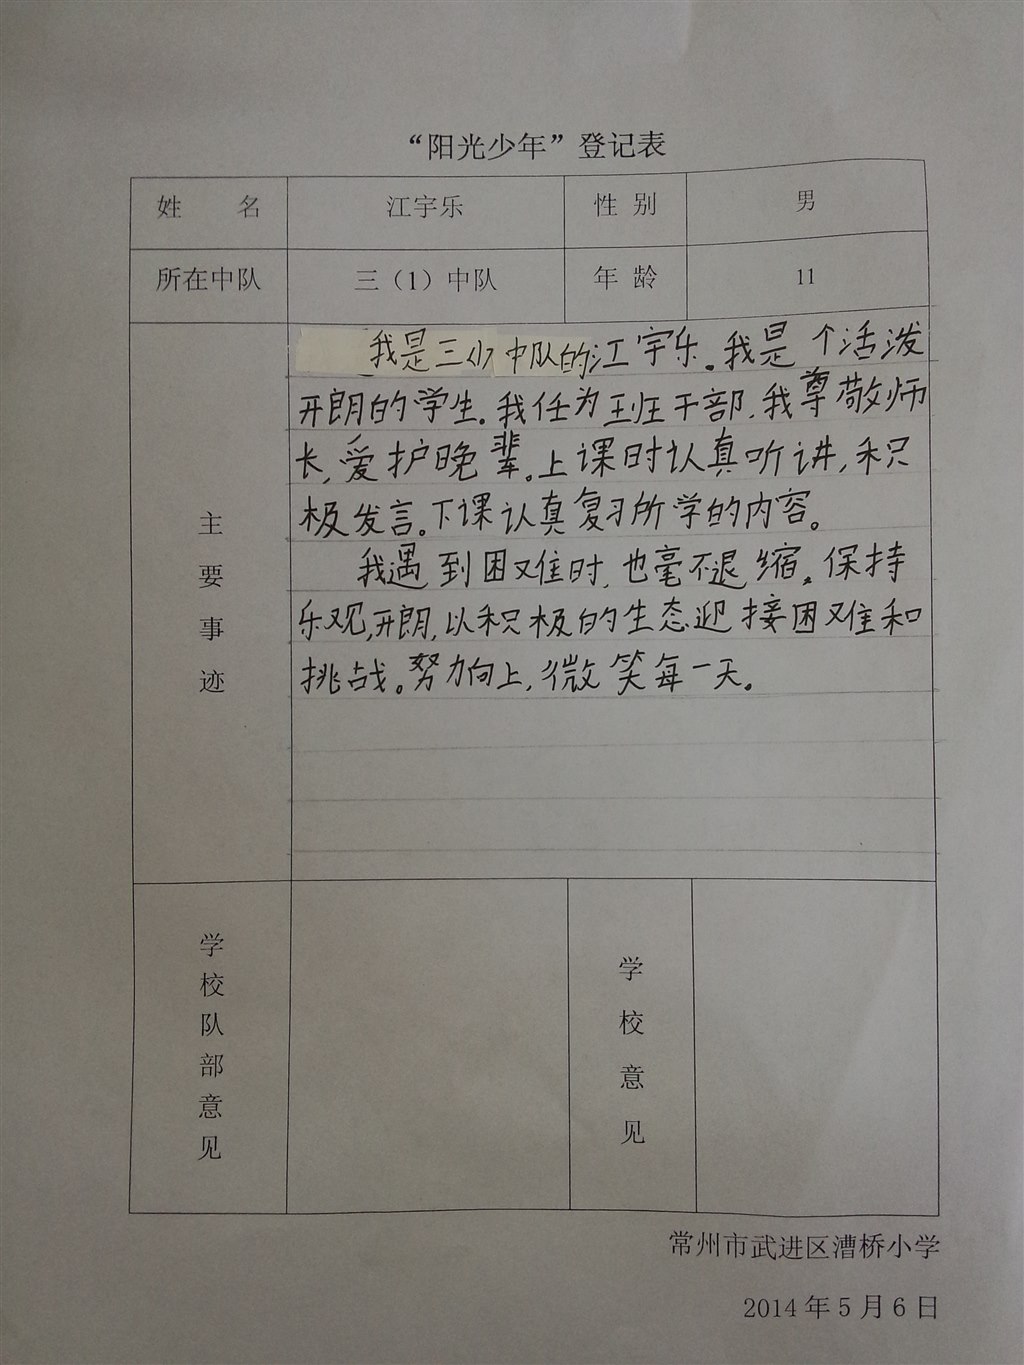 “阳光少年”登记表
姓 名 江宇乐 性 别 男
所在中队 三（1）中队 年 龄 11
主要事迹
我是三（1）中队的江宇乐。我是个活泼
开朗的学生。我任为班干部，我尊敬师
长，爱护晚辈。上课时认真听讲，积
极发言。下课认真复习所学的内容。
我遇到困难时，也毫不退缩。保持
乐观，开朗，以积极的生态迎接困难和
挑战。努力向上，微笑每一天。
学校队部意见
学校意见
常州市武进区漕桥小学
2014年5月6日